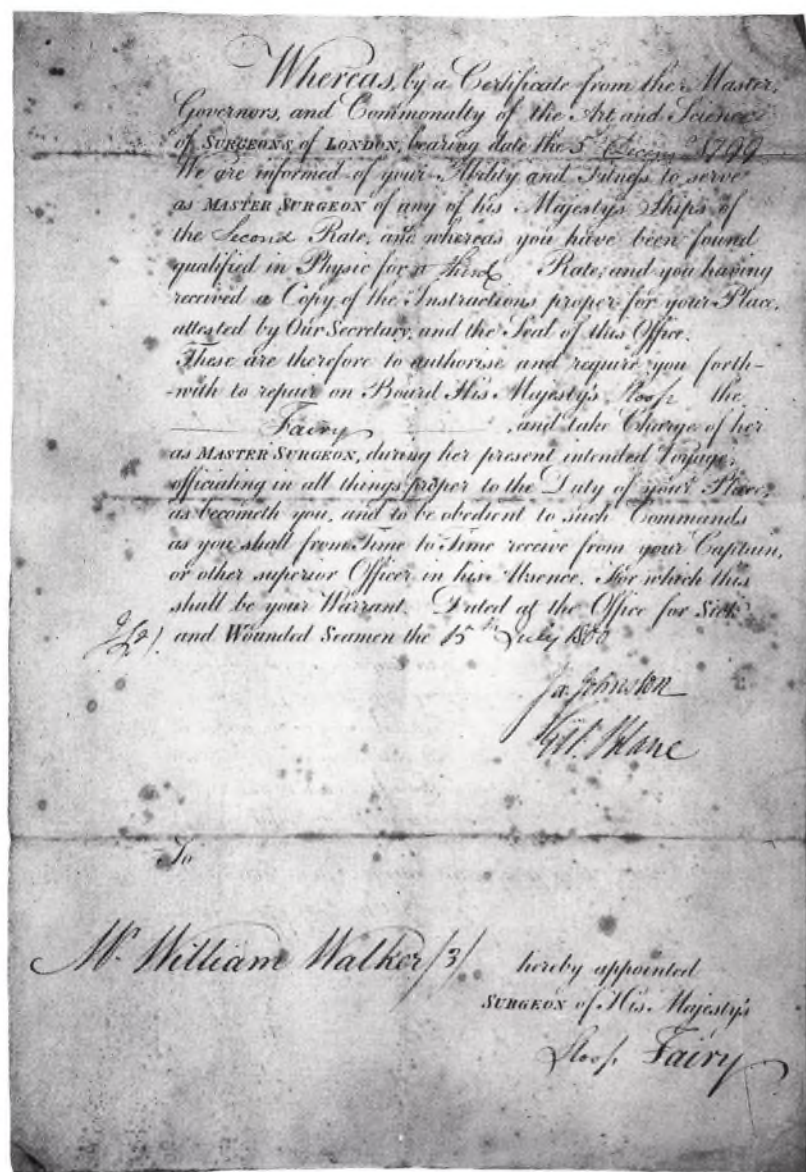 Whereas, by a Certificate from the Master,
Governors, and Commonalty of the Art and Science
of SURGEONS of LONDON, bearing date the 5th Decem 1799
We are informed of your Ability and Fitness to serve
as MASTER SURGEON of any of his Majesty's Ships of
the Second Rate, and whereas you have been found
qualified in Physic for a third Rate, and you having
received a Copy of the Instructions proper for your Place,
attested by Our Secretary, and the Seal of this Office.
These are therefore to authorise and require you forth-
-with to repair on Board His Majesty's Sloop the
Fairy, and take Charge of her
as MASTER SURGEON, during her present intended Voyage,
officiating in all things proper to the Duty of your Place,
as becometh you, and to be obedient to such Commands
as you shall from Time to Time receive from your Captain,
or other superior Officer in his Absence. For which this
shall be your Warrant. Dated at the Office for Sick
and Wounded Seamen the 15th July 1800
Ja. Johnston
Gilt. Blane
To
Mr. William Walker /3/
hereby appointed
SURGEON of His Majesty's
Sloop Fairy